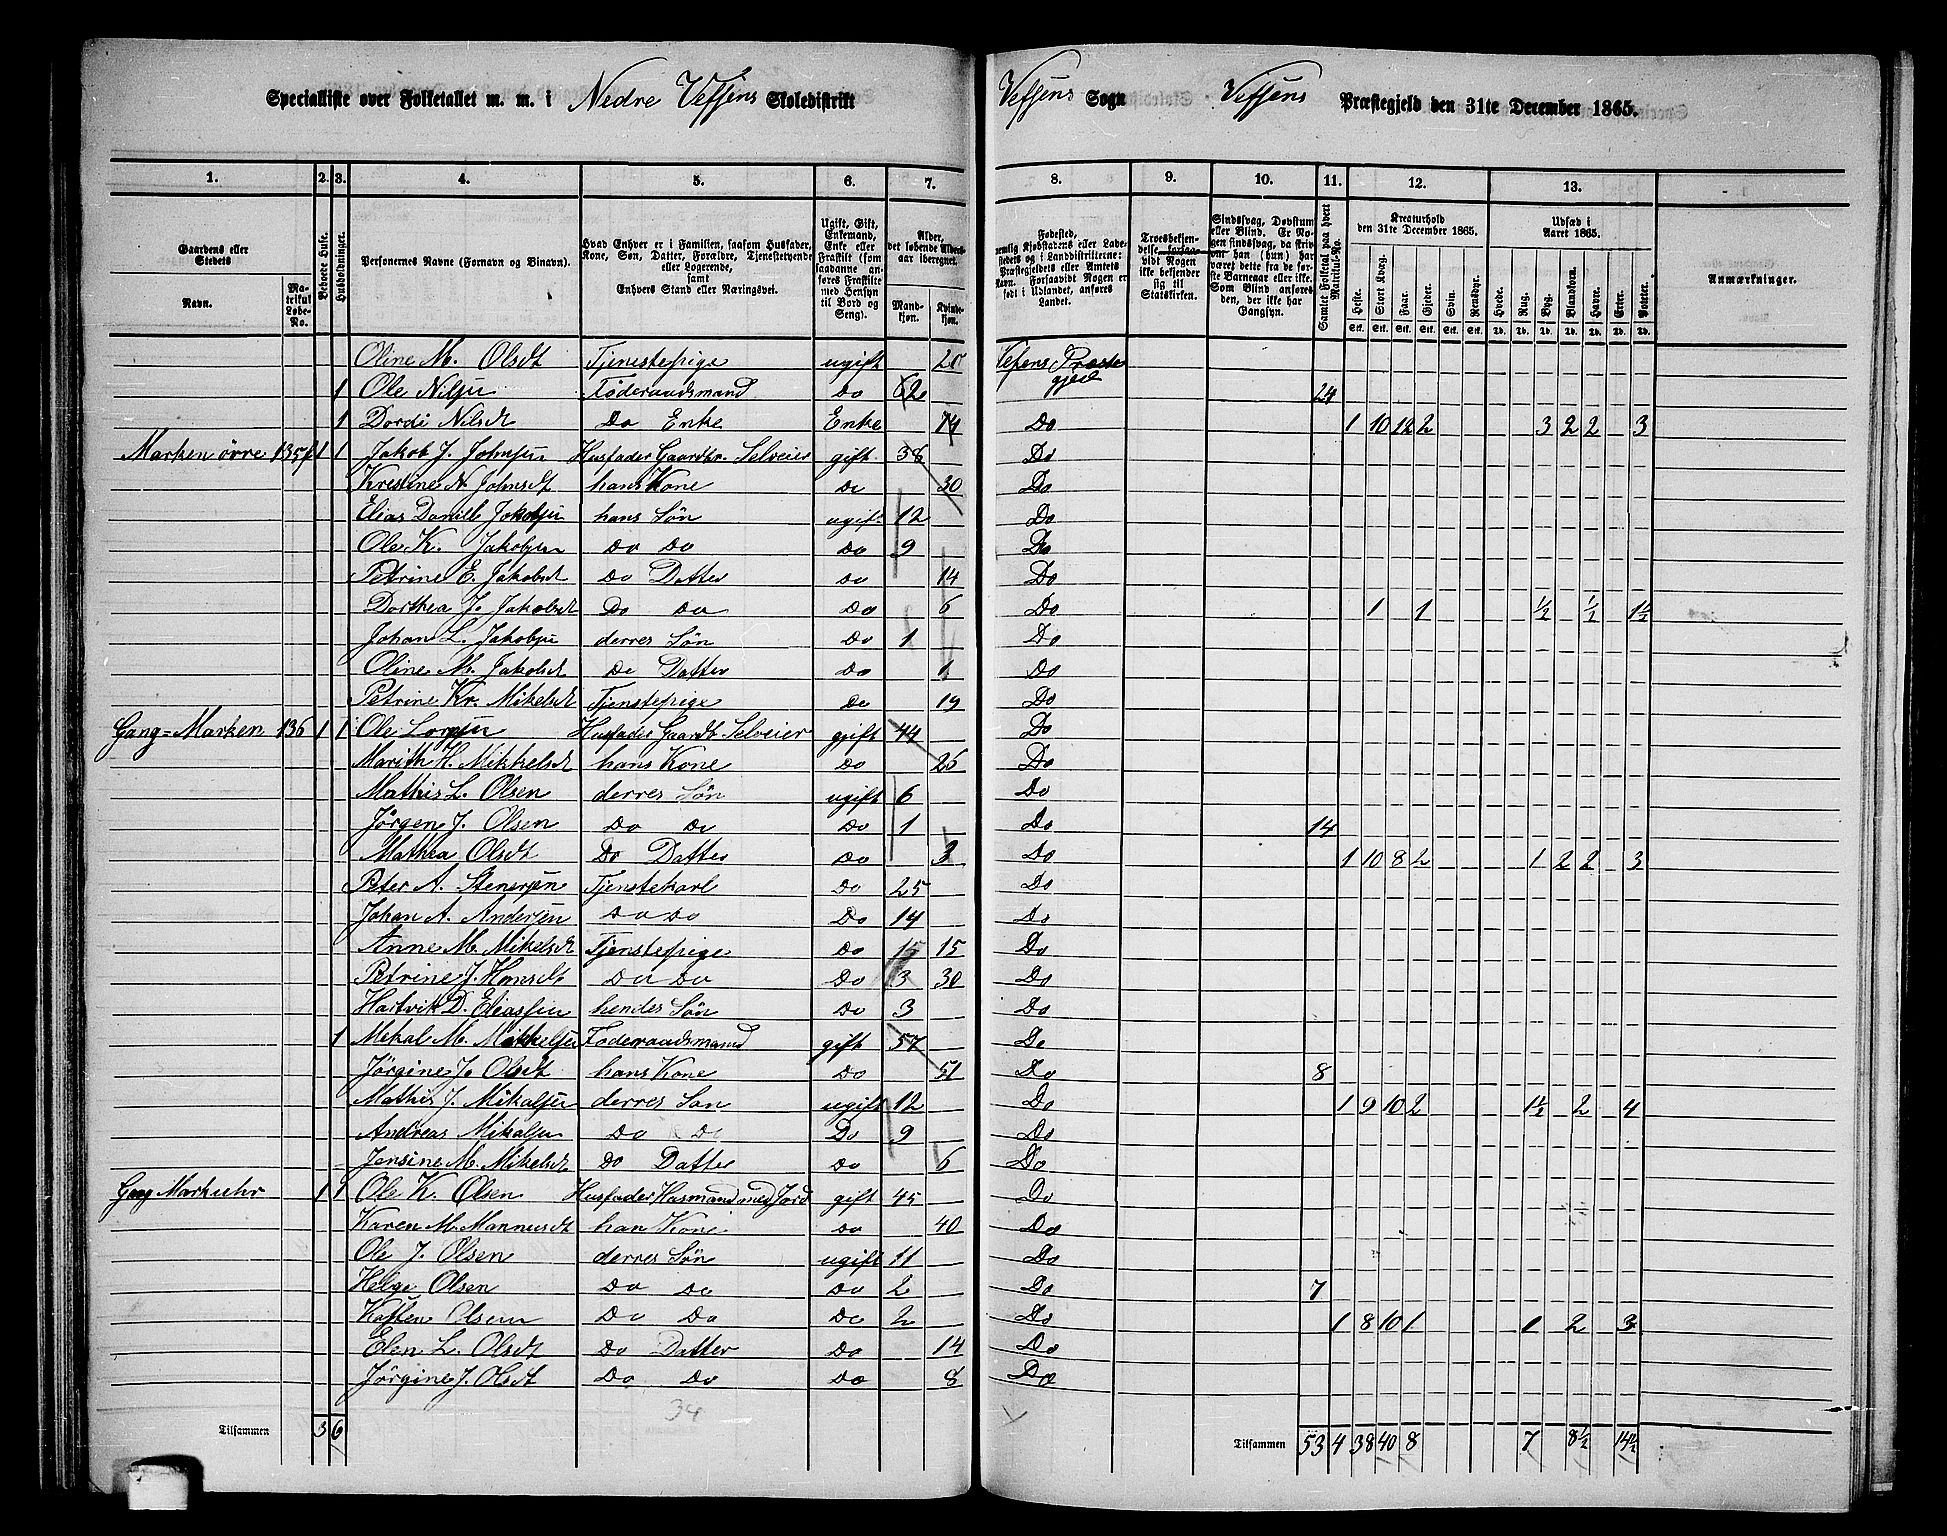 Specialliste over Folketallet m. m. i Nedre Vefsens Skoledistrikt Vefsens Sogn Vefsens Præstegjeld den 31te December 1865.
1. 2. 3. 4. 5. 6. 7. 8. 9. 10. 11. 12. 13.
Gaardens eller Stedets Navn. Matrikul Løbe-No. Beboede Huse. Husholdninger. Personernes Navne (Fornavn og Binavn). Hvad Enhver er i Familien, saasom Husfader, Kone, Søn, Datter, Forældre, Tjenestetyende eller Logerende, samt Enhvers Stand eller Næringsvei. Ugift, Gift, Enkemand, Enke eller Fraskilt (som saadanne anføres Fraskilte med Hensyn til Bord og Seng). Alder, det løbende Aldersaar iberegnet. Mandkjøn. Kvindekjøn.
Fødested, nemlig Kjøbstadens eller Ladestedets og i Landdistrikterne: Præstegjeldets eller Amtets Navn. Forsaavidt Nogen er født i Udlandet, anføres Landet. Troesbekjendelse forsaavidt Nogen ikke bekjender sig til Statskirken. Sindssvag, Døvstum eller Blind. Er Nogen sindssvag, da skrives om han (hun) har været dette fra de første Barneaar eller ikke. Som Blind anføres den, der ikke har Gangsyn. Samlet Folketal paa hvert Matrikul-No. Kreaturhold den 31te December 1865. Heste. Stort Kvæg. Faar. Gjeder. Svin. Rensdyr. Udsæd i Aaret 1865. Hvede. Rug. Byg. Blandkorn. Havre. Erter. Poteter. Anmærkninger.
Oline M. Olsdt Tjenestepige ugift 25 Vefsens Præstegjeld
1 Ole Nilsen Føderaadsmand Do 62 24
1 Dordi Nilsdt Do Enke Enke 74 Do 1 10 12 2 3 2 2 3
Marken øvre 135 1 1 Jakob J. Johnsen Husfader Gaardbr. Selveier gift 38 Do
Kristine N Johnsdt hans Kone Do 30 Do
Elias Daniel Jakobsen hans Søn ugift 12 Do
Ole K. Jakobsen Do Do Do 9 Do
Petrine E. Jakobsdt Do Datter Do 14 Do
Dorthea J. Jakobsdt Do Do Do 6 Do 1 1 1/2 1/2 1 1/2
Johan L. Jakobsen derres Søn Do 1 Do
Oline M. Jakobsdt Do Datter Do 1 Do
Petrine Kr. Mikelsdt Tjenstepige Do 19 Do
Gang=Marken 136 1 1 Ole Larsen Husfader Gaardb Selveier gift 44 Do
Marith H. Mikkelsdt hans Kone Do 26 Do
Mathis L. Olsen derres Søn ugift 6 Do
Jørgen J. Olsen Do Do Do 1 Do 14
Mathea Olsdt Do Datter Do 3 Do 1 10 8 2 1 2 2 3
Peter A. Stensøen Tjenstekarl Do 25 Do
Johan A. Andersen Do Do Do 14 Do
Anne M. Mikelsdt Tjenstepige Do 15 15 Do
Petrine J. Hansdt Do Do Do 3 30 Do
Hartvik D. Eliassen hendes Søn Do 3 Do
1 Mikal M. Mikkelsen Føderaadsmand gift 57 Do
Jørgine J. Olsdt hans Kone Do 51 Do 8
Mathis J. Mikalsen derres Søn ugift 12 Do 1 9 10 2 1 1/2 2 4
Andreas Mikalsen Do Do Do 9 Do
Jensine M. Mikelsdt Do Datter Do 6 Do
1 1 Ole K. Olsen Husfader Husmand med Jord gift 45 Do
Karen M. Mannusdt han Kone Do 40 Do
Ole J. Olsen derres Søn ugift 11 Do
Helge Olsen Do Do Do 2 Do 7
Olsen Do Do Do 2 Do 1 8 10 1 1 2 3
Elen L. Olsdt Do Datter Do 14 Do
Jørgine J. Olsdt Do Do Do 8 Do
34
Tilsammen 3 6 Tilsammen 53 4 38 40 8 7 8 1/2 14 1/2